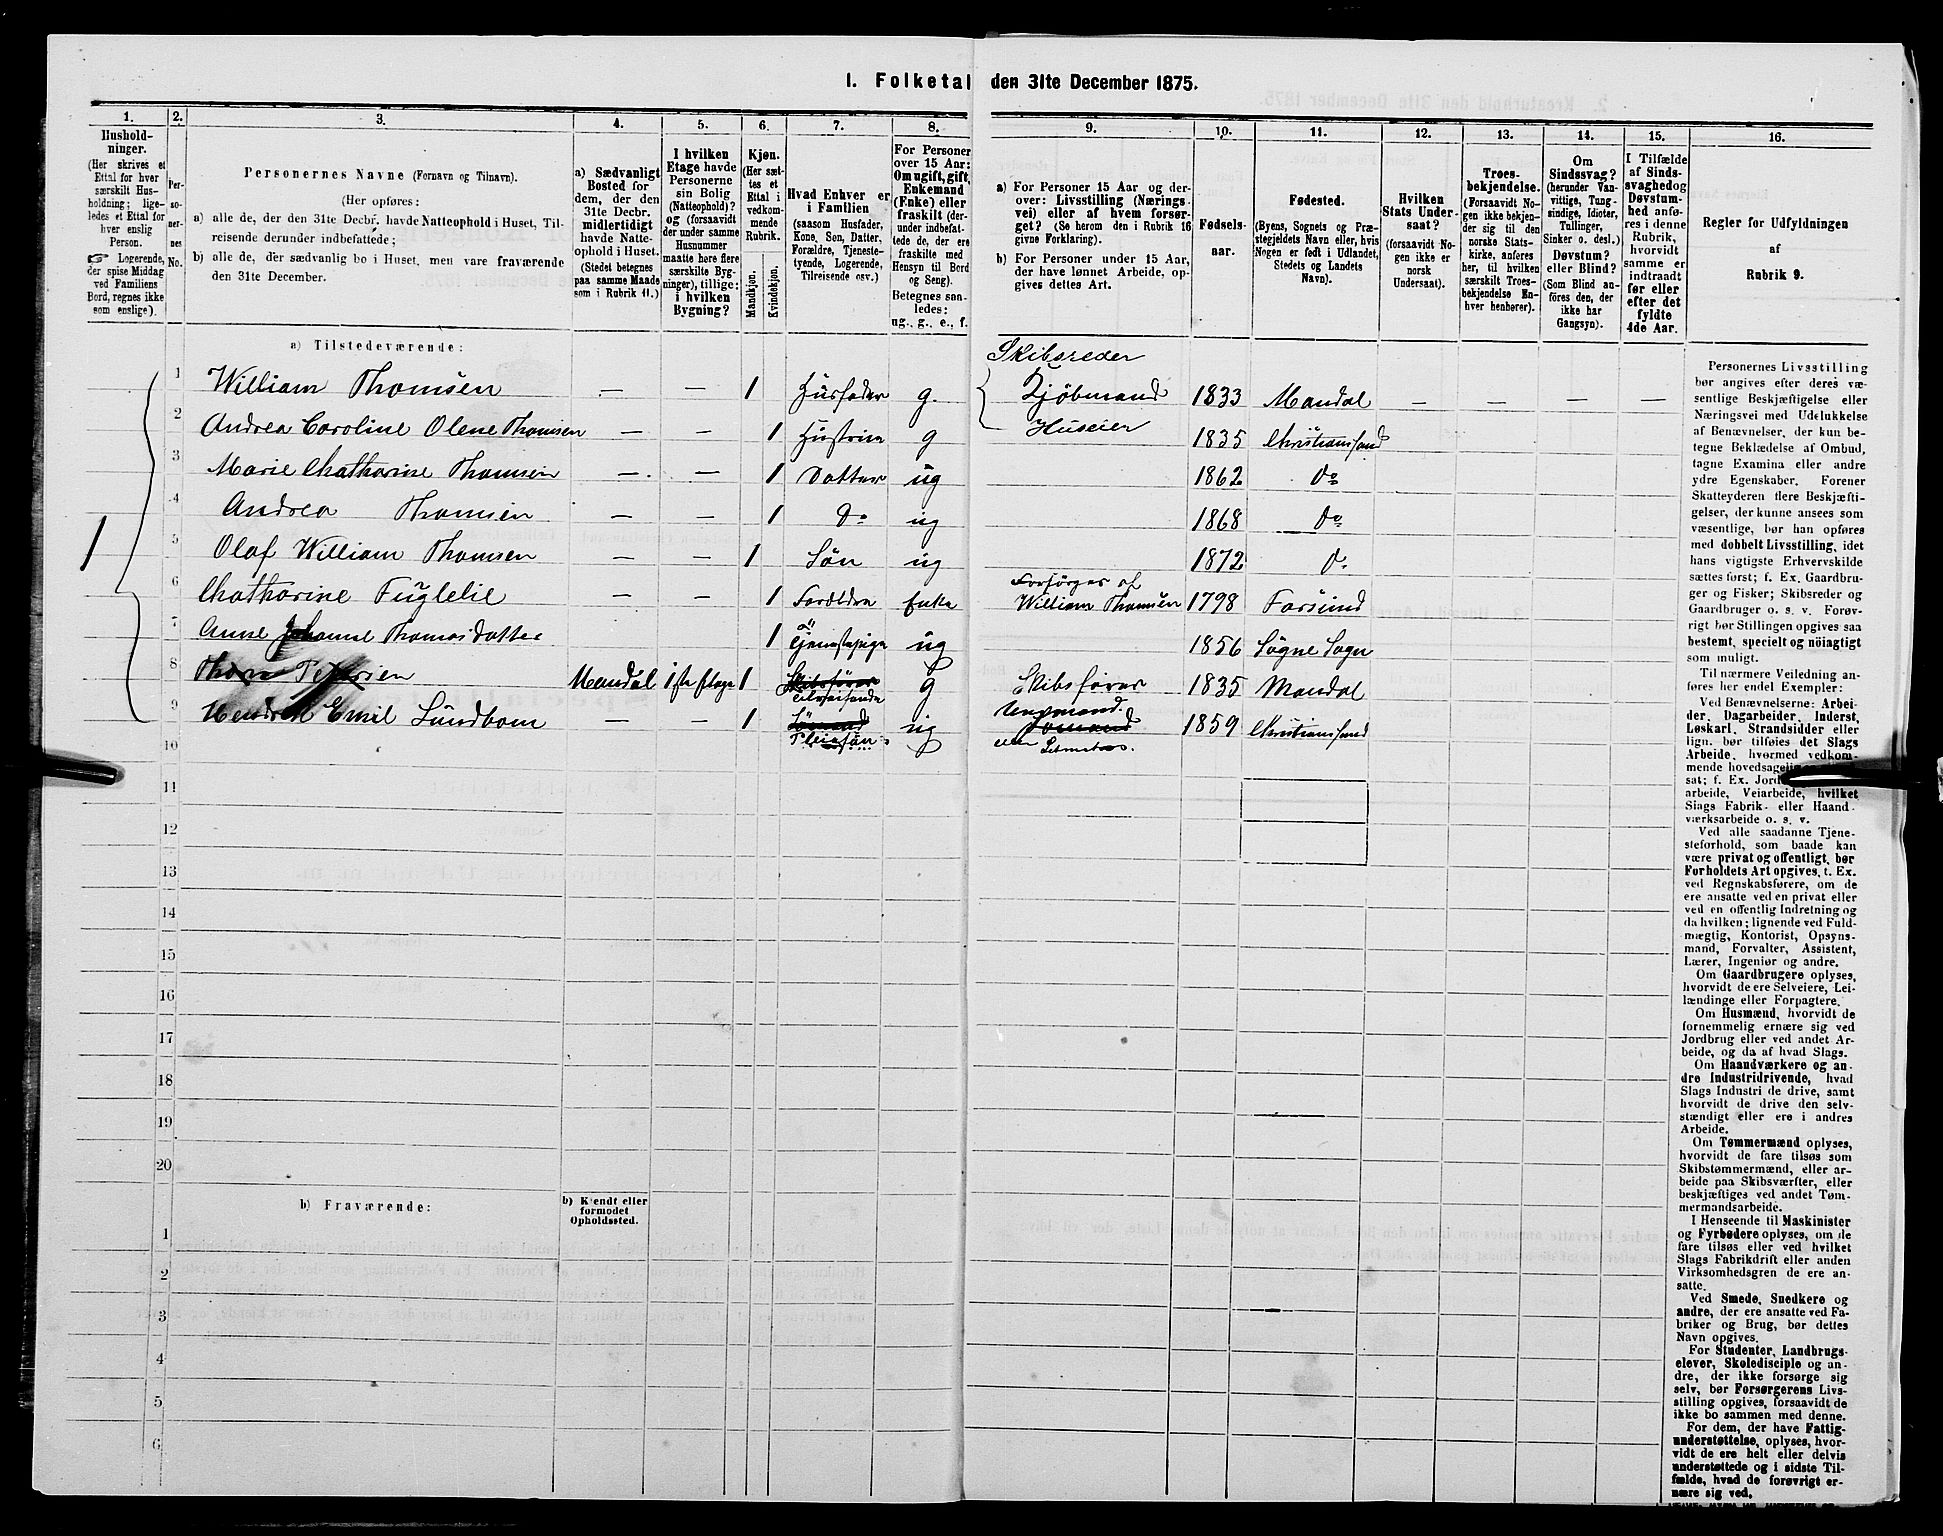 1. Folketal den 31te December 1875.
1.
Hushold-
ninger.
(Her skrives et
Ettal for hver
særskilt Hus-
holdning; lige-
ledes et Ettal for
hver enslig
Person.
Logerende,
der spise Middag
ved Familiens
Bord, regnes ikke
som enslige).
2.
Per-
so-
ner-
nes
No.
3.
Personernes Navne (Fornavn og Tilnavn).
(Her opføres:
a) alle de, der den 31te Decbr. havde Natteophold i Huset, Til-
reisende derunder indbefattede;
b) alle de, der sædvanlig bo i Huset, men vare fraværende
den 31te December.
4.
a) Sædvanligt
Bosted for
dem, der den
31te Decbr.
midlertidigt
havde Natte-
ophold i Huset.
(Stedet betegnes
paa samme Maade
som i Rubrik 11.)
5.
I hvilken
Etage havde
Personerne
sin Bolig
(Natteophold)?
og (forsaavidt
der under samme
Husnummer
maatte høre flere
særskilte Byg-
ninger), tillige:
i hvilken
Bygning?
6.
Kjøn.
(Her sæt-
tes et
Ettal i
vedkom-
mende
Rubrik.
Mandkjøn.
Kvindekjøn.
7.
Hvad Enhver er
i Familien
(saasom Husfader,
Kone, Søn, Datter,
Forældre, Tjeneste-
tyende, Logerende,
Tilreisende osv.)
8.
For Personer
over 15 Aar:
Om ugift, gift,
Enkemand
(Enke) eller
fraskilt (der-
under indbefat-
tede de, der ere
fraskilte med
Hensyn til Bord
og Seng).
Betegnes saa-
ledes:
ug., g., e., f.
9.
a) For Personer 15 Aar og der-
over: Livsstilling (Nærings-
vei) eller af hvem forsør-
get? (Se herom den i Rubrik 16
givne Forklaring).
b) For Personer under 15 Aar,
der have lønnet Arbeide, op-
gives dettes Art.
10.
Fødsels-
aar.
11.
Fødested.
(Byens, Sognets og Præ-
stegjeldets Navn eller, hvis
Nogen er født i Udlandet,
Stedets og Landets
Navn).
12.
Hvilken
Stats Under-
saat?
(forsaavidt No-
gen ikke er
norsk
Undersaat).
13.
Troes-
bekjendelse.
(Forsaavidt No-
gen ikke bekjen-
der sig til den
norske Stats-
kirke, anføres
her, til hvilken
særskilt Troes-
bekjendelse En-
hver henhører).
14.
Om
Sindssvag?
(herunder Van-
vittige, Tung-
sindige, Idioter,
Tullinger,
Sinker o. desl.)
Døvstum?
eller Blind?
(Som Blind an-
føres den, der
ikke har
Gangsyn).
15.
I Tilfælde
af Sinds-
svaghed og
Døvstum-
hed anfø-
res i denne
Rubrik,
hvorvidt
samme er
indtraadt
før eller
efter det
fyldte
4de Aar.
16.
Regler for Udfyldningen
af
Rubrik 9.
a) Tilstedeværende:
Skibsreder
1 William Thomsen — — 1 Husfader g. Kjøbmand 1833 Mandal — — — —
2 Andrea Caroline Olene Thomsen — — 1 Hustru g Huseier 1835 Christianssand
3 Marie Chatharine Thomsen — — 1 Datter ug 1862 do
4 Andrea Thomsen — — 1 do ug 1868 do
1
5 Olaf William Thomsen — — 1 Søn ug 1872 do
Forsørges af
6 Chatharine Fuglelie 1 Enke William Thomsen 1798 Farsund
7 Anne Johanne Thomasdatter 1 Tjenestepige ug 1856 Søgne Sogn
8 Petersen Mandal 1ste Etage 1 Skibsfører g Skibsfører 1835 Mandal
Tilreisende
9 Emil Lundbom — — 1 ug 1859 Christianssand
Pleiesøn eller
10
11
12
13
14
15
16
17
18
19
20
b) Fraværende:
b) Kjendt eller
formodet
Opholdssted.
1
2
3
4
5
6
Personernes Livsstilling
bør angives efter deres væ-
sentlige Beskjæftigelse eller
Næringsvei med Udelukkelse
af Benævnelser, der kun be-
tegne Beklædelse af Ombud,
tagne Examina eller andre
ydre Egenskaber. Forener
Skatteyderen flere Beskjæfti-
gelser, der kunne ansees som
væsentlige, bør han opføres
med dobbelt Livsstilling, idet
hans vigtigste Erhvervskilde
sættes først; f. Ex. Gaardbru-
ger og Fisker; Skibsreder og
Gaardbruger o. s. v. Forøv-
rigt bør Stillingen opgives saa
bestemt, specielt og nöiagtigt
som muligt.
Til nærmere Veiledning an-
føres her endel Exempler:
Ved Benævnelserne: Arbei-
der, Dagarbeider, Inderst,
Løskarl, Strandsidder eller
lign. bør tilføies det Slags
Arbeide, hvormed vedkom-
mende hovedsagelig
sat; f. Ex. Jord-
arbeide, Veiarbeide, hvilket
Slags Fabrik- eller Haand-
værksarbeide o. s. v.
Ved alle saadanne Tjene-
steforhold, som baade kan
være privat og offentligt, bør
Forholdets Art opgives, t. Ex.
ved Regnskabsførere, om de
ere ansatte ved en privat eller
ved en offentlig Indretning og
da hvilken; lignende ved Fuld-
mægtig, Kontorist, Opsyns-
mand, Forvalter, Assistent,
Lærer, Ingeniør og andre.
Om Gaardbrugere oplyses,
hvorvidt de ere Selveiere, Lei-
lændinge eller Forpagtere.
Om Husmænd, hvorvidt de
fornemmelig ernære sig ved
Jordbrug eller ved andet Ar-
beide, og da af hvad Slags.
Om Haandværkere og an-
dre Industridrivende, hvad
Slags Industri de drive, samt
hvorvidt de drive den selv-
stændigt eller ere i andres
Arbeide.
Om Tømmermænd oplyses,
hvorvidt de fare tilsøs som
Skibstømmermænd, eller ar-
beide paa Skibsværfter, eller
beskjæftiges ved andet Tøm-
mermandsarbeide.
I Henseende til Maskinister
og Fyrbødere oplyses, om de
fare tilsøs eller ved hvilket
Slags Fabrikdrift eller anden
Virksomhedsgren de ere an-
satte.
Ved Smede, Snedkere og
andre, der ere ansatte ved Fa-
briker og Brug, bør dettes
Navn opgives.
For Studenter, Landbrugs-
elever, Skoledisciple og an-
dre, der ikke forsørge sig
selv, bør Forsørgerens Livs-
stilling opgives, forsaavidt de
ikke bo sammen med denne.
For dem, der have Fattig-
understøttelse, oplyses, hvor-
vidt de ere helt eller delvis
understøttede og i sidste Til-
fælde, hvad de forøvrigt er-
nære sig ved.